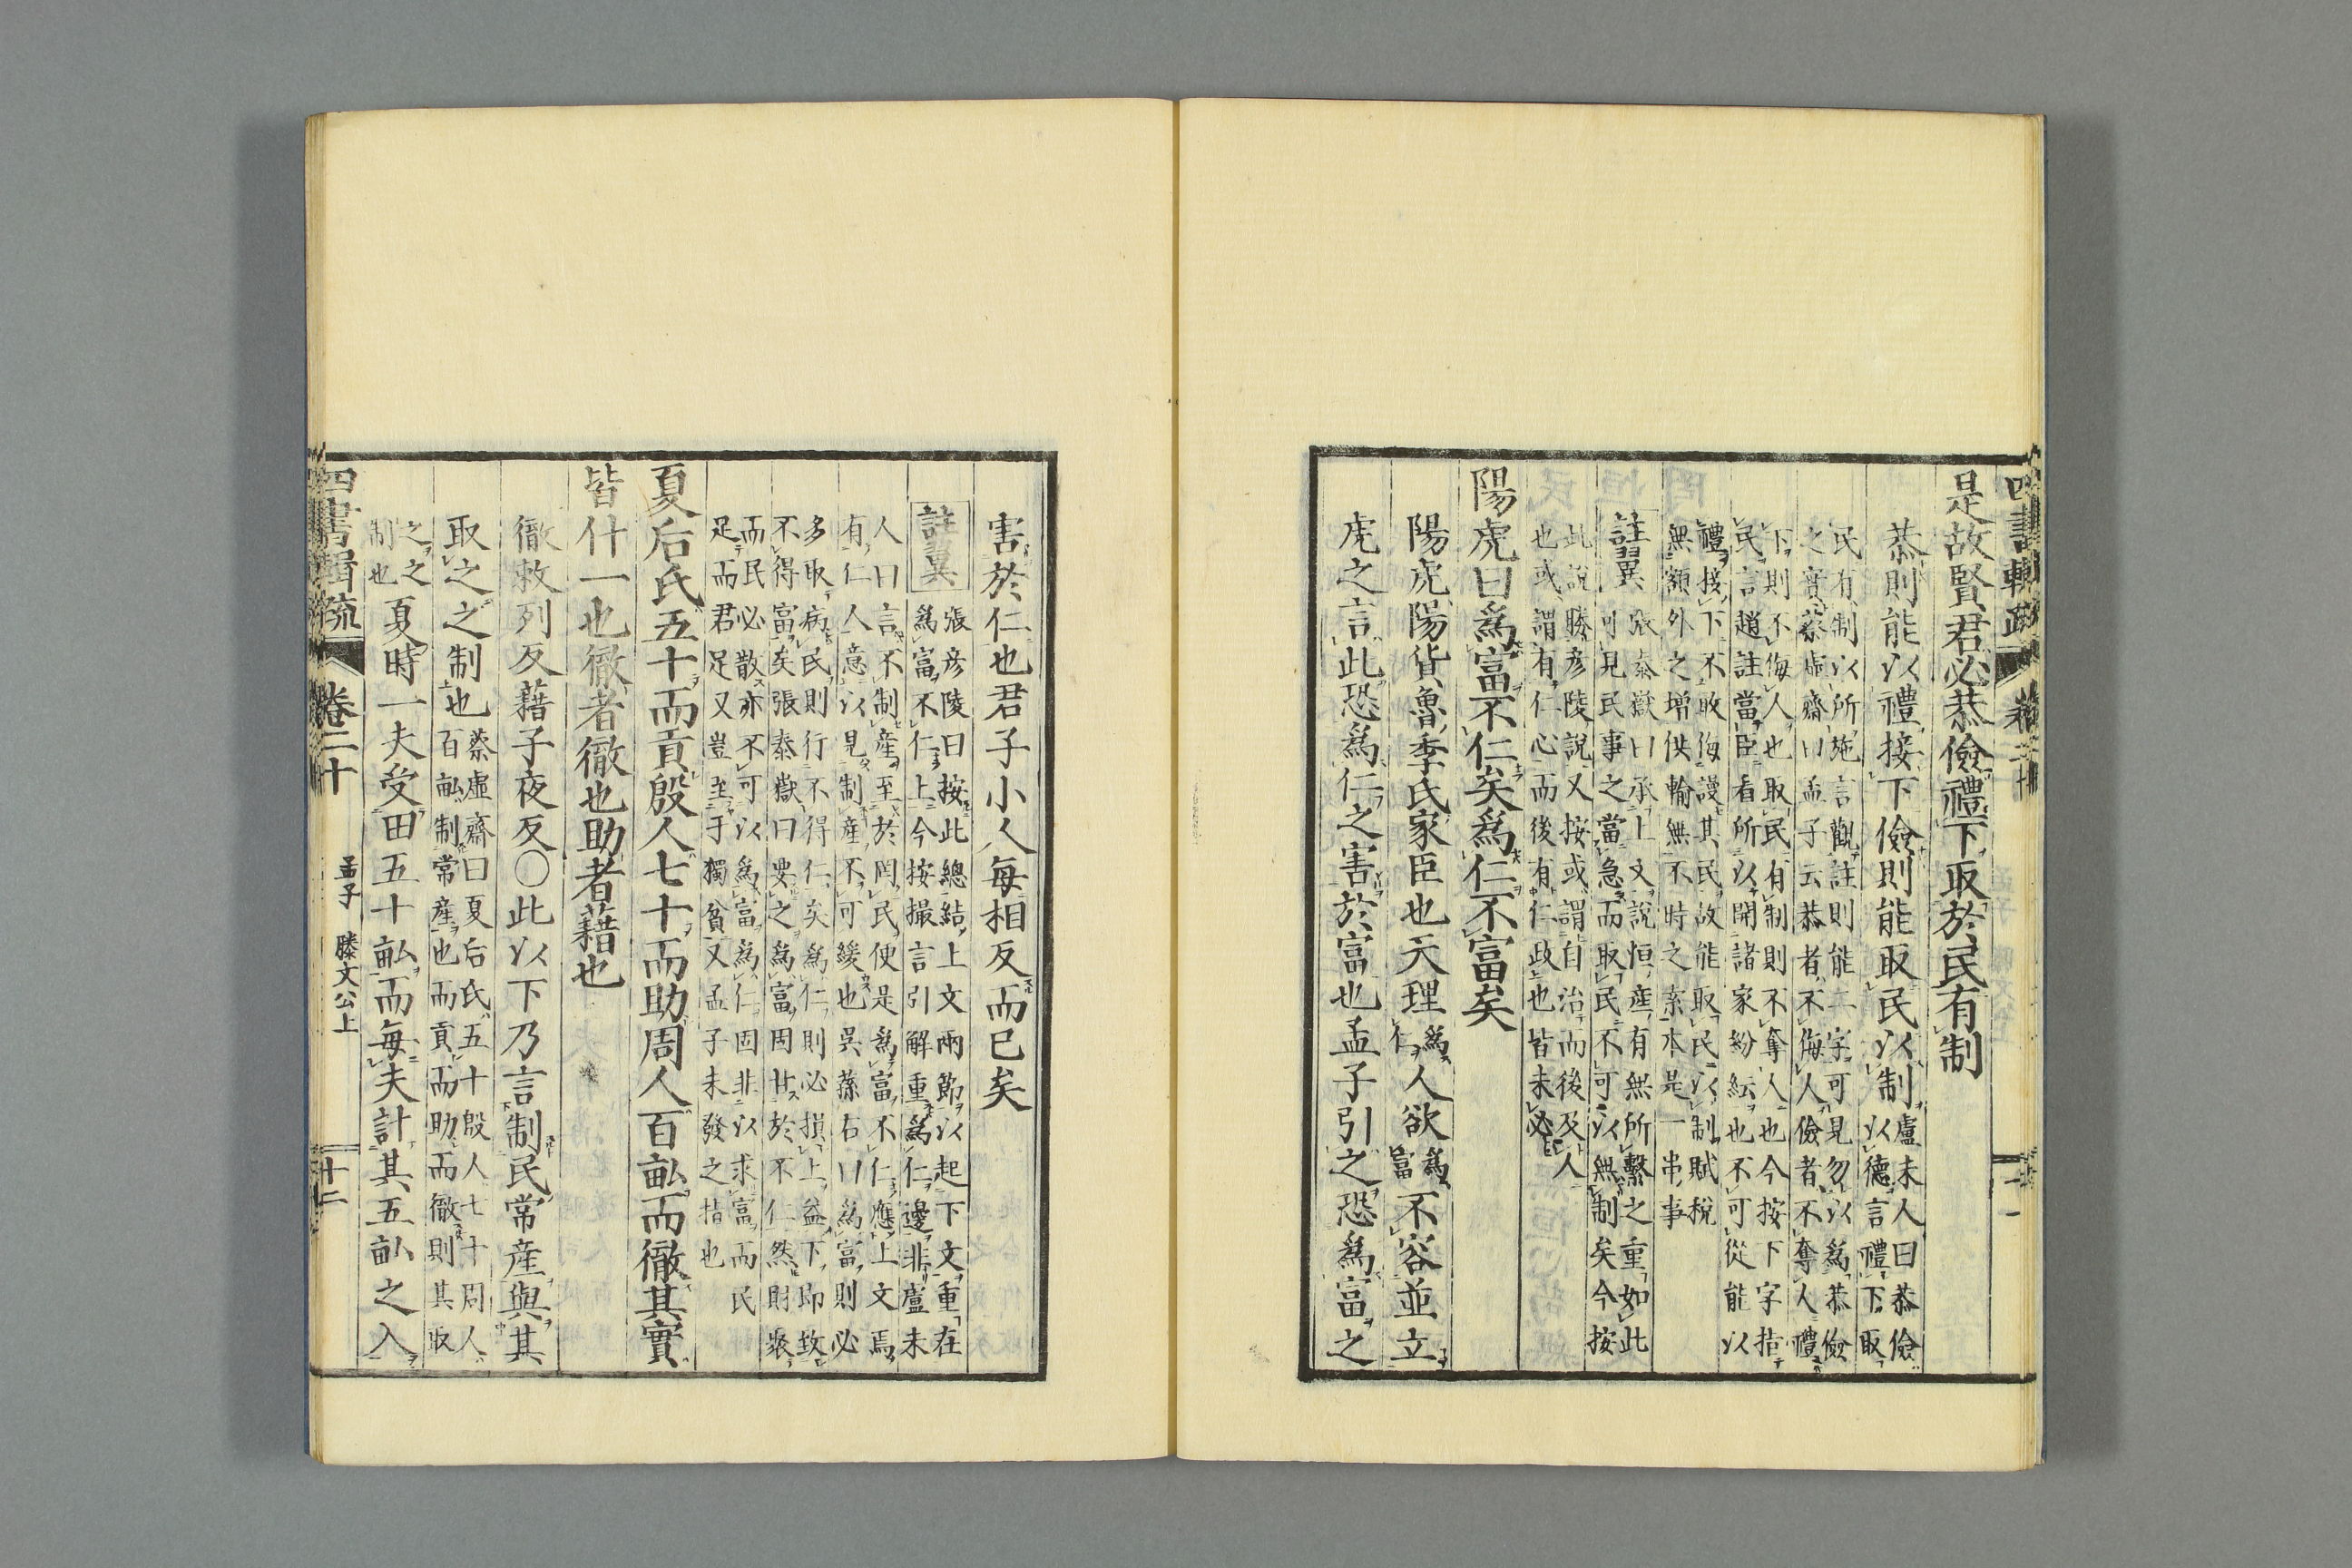 是故賢君必恭儉禮下取於民有制
恭則能以禮接下儉則能取民以制
盧未人曰恭儉
以德言禮下取
民有制以所施言觀註則能二字可見勿以爲恭儉
之實蔡虛齋曰孟子云恭者不侮人儉者不奪人禮
下則不侮人也取民有制則不奪人也今按下字指
民言趙註當臣看所以開諸家紛紜也不可從能以
禮接下不敢侮謾其民故能取民以制賦稅
無額外之增供輸無不時之索本是一串事
註翼
張泰嶽曰承上文說恒產有無所繫之重如此
可見民事之當急而取民不可以無制矣今按
此說勝彥陵說又按或謂自治而後及人
也或謂有仁心而後有仁政也皆未必
陽虎曰爲富不仁矣爲仁不富矣
陽虎陽貨魯季氏家臣也天理爲仁人欲爲富不容並立
虎之言此恐爲仁之害於富也孟子引之恐爲富之
害於仁也君子小人每相反而已矣
註翼
張彥陵曰按此總結上文兩節以起下文重在
爲富不仁上今按撮言引解重爲仁邊非盧未
人曰言不制產至於罔民便是爲富不仁應上文焉
有仁人意以見制產不可緩也吳蓀右曰爲富則必
多取病民則行不得仁矣爲仁則必損上益下即致
不得富矣張泰嶽曰要之爲富固甘於不仁然財聚
而民必散亦不可以爲富爲仁固非以求富而民
足而君足又豈至于獨貧又孟子未發之指也
夏后氏五十而貢殷人七十而助周人百畝而徹其實
皆什一也徹者徹也助者藉也
徹敕列反藉子夜反○此以下乃言制民常產與其
取之之制也
蔡虛齋曰夏后氏五十殷人七十周人
百畝制常產也而貢而助而徹則其取
之之
制也
夏時一夫受田五十畝而每夫計其五畝之入
四書輯疏
卷二十
孟子 滕文公上
十二